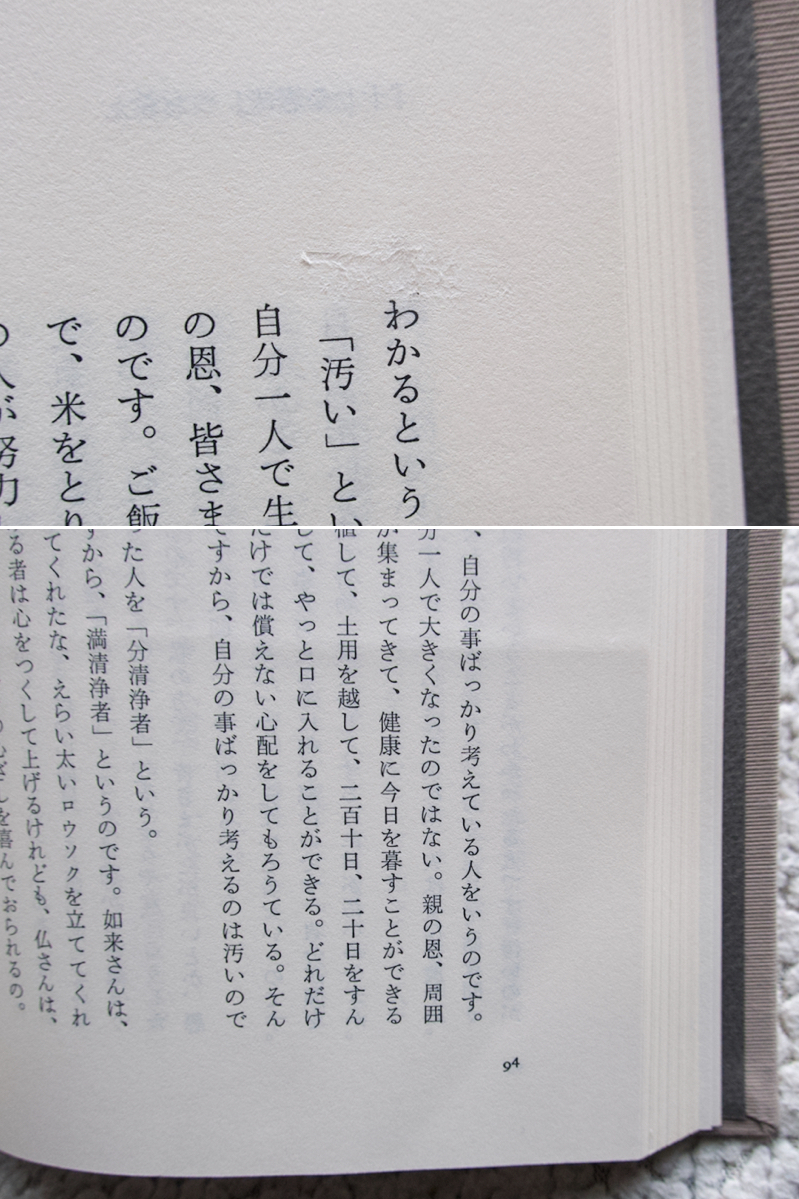 わかるという
「汚い」とい
自分一人で生
の恩、皆さま
のです。ご飯
で、米をとり
の人が努力
、自分の事ばっかり考えている人をいうのです。
分一人で大きくなったのではない。親の恩、周囲
が集まってきて、健康に今日を暮すことができる
植して、土用を越して、二百十日、二十日をすん
して、やっと口に入れることができる。どれだけ
だけでは償えない心配をしてもろうている。そん
ですから、自分の事ばっかり考えるのは汚いので
った人を「分清浄者」という。
すから、「満清浄者」というのです。如来さんは、
てくれたな、えらい太いロウソクを立ててくれ
る者は心をつくして上げるけれども、仏さんは、
を喜んでおられるの。
94